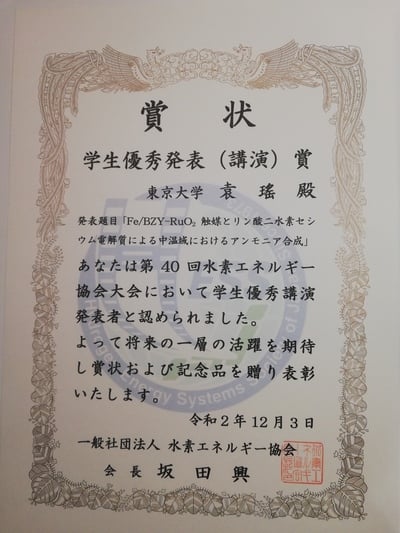 賞状
学生優秀発表（講演）賞
東京大学 袁 瑤 殿
発表題目「Fe/BZY-RuO₂ 触媒とリン酸二水素セシ
ウム電解質による中温域におけるアンモニア合成」
あなたは第 40 回水素エネルギー
協会大会において学生優秀講演
発表者と認められました。
よって将来の一層の活躍を期待
し賞状および記念品を贈り表彰
いたします。
令和２年１２月３日
一般社団法人 水素エネルギー協会
会長 坂田興